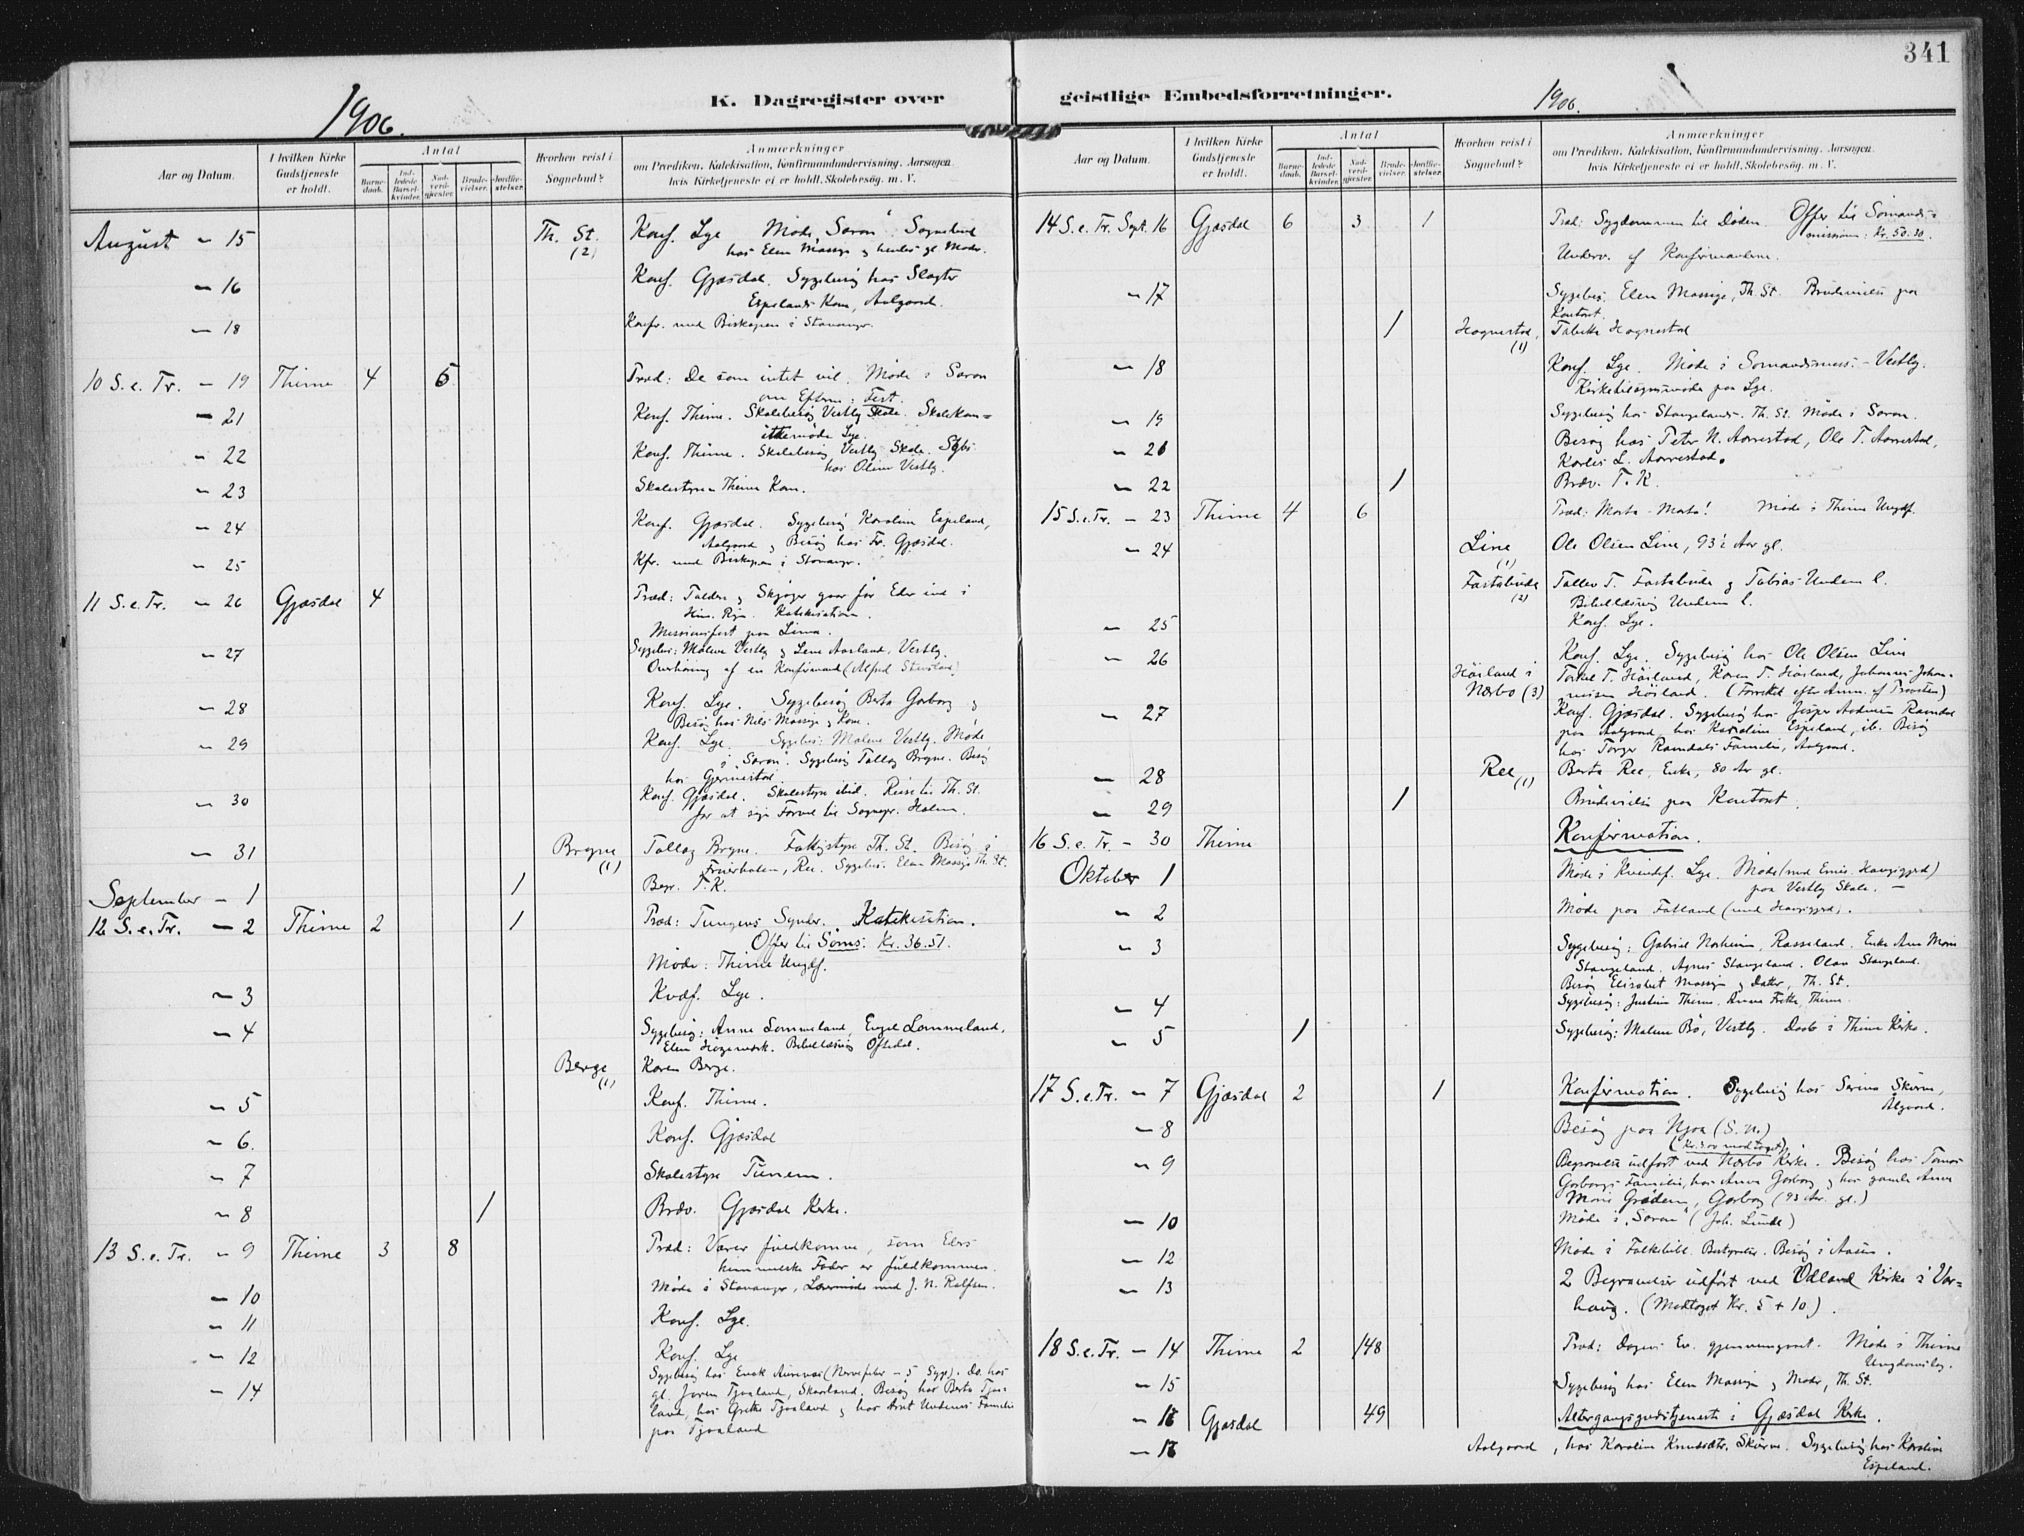 341
K. Dagregister over geistlige Embedsforretninger.
1906.
1906.
Aar og Datum.
I hvilken Kirke Gudstjeneste er holdt.
Antal
Barnedaab.
Indledede Barselkvinder.
Nadverdgjæster.
Brudevielser.
Jordfæstelser.
Hvorhen reist i Sognebud?
Anmærkninger
om Prædiken, Katekisation, Konfirmandundervisning, Aarsagen,
hvis Kirketjeneste ei er holdt, Skolebesøg, m. V.
August - 15 Th. St. (2) Konf. Lye Møde "Saron". Sognebud
hos Elen Mossige og hendes gl. Moder.
- 16 Konf. Gjæsdal. Sygebesøg hos Slagter
Espelands Kone, Aalgaard.
- 18 Konfr. med Biskopen i Stavanger.
10 S. e. Tr. - 19 Thime 4 6 Præd: De som intet vil. Møde i Saron
om Efterm: Fest.
- 21 Konf. Thime. Skolebesøg Vestly Skole. Skolekom=
itemøde Lye.
- 22 Konf. Thime. Skolebesøg Vestly Skole. Sybs
hos Oline Vestly.
- 23 Skolestyre Thime Kom.
- 24 Konf. Gjæsdal. Sygebesøg Karoline Espeland,
Aalgaard og Besøg hos Fr. Gjæsdal.
- 25 Kfr. med Biskopen i Stavanger.
11 S. e. Tr. - 26 Gjæsdal 4 Præd: Toldere og Skjøger gaar før Eder ind i
Him. Rige. Katekisation.
Missionsfest paa Lima.
- 27 Sygebes: Malene Vestly og Lene Aarland, Vestly.
Overhøring af en Konfirmand (Alfred
- 28 Konf. Lye. Sygebesøg Berta Garborg og
Besøg hos Nils Mossige og Kone.
- 29 Konf. Lye. Sygebes: Malene Vestly. Møde
i "Saron". Sygebesøg Tollag Bryne. Besøg
hos Gjermestad.
- 30 Konf. Gjæsdal. Skolestyre ibid. Reise til Th. St.
for at sige Farvel til Sognepr. Holm.
- 31 Bryne (1) Tollag Bryne. Fattigstyre Th. St. Besøg i
Frierhalen, Ree. Sygebes. Elen Mossige Th. St.
September - 1 1 Begr. T. K.
12 S. e. Tr. - 2 Thime 2 1 Præd: Tungens Synder. Katekisation.
Offer til Søms: Kr. 36.51.
Møde: Thime Ungdf.
- 3 Kvdf. Lye.
- 4 Sygebesøg: Anne Lommeland, Engel Lommeland,
Elen Høgemork. Bibellæsning Oftedal.
Berge (1) Karen Berge.
- 5 Konf. Thime.
- 6. Konf. Gjæsdal
- 7 Skolestyre Tunem.
- 8 1 Brdv. Gjæsdal Kirke.
13 S. e. Tr. - 9 Thime 3 8 Præd: Værer fuldkomne, som Eders
himmelske Fader er fuldkommen.
- 10 Møde i Stavanger, Lærermøde med J. N. Rolfsen.
- 11 Konf. Lye.
- 12 Konf. Lye
- 14 Sygebesøg hos Enok Aurenes (Nervefeber - 5 Syge). Do. hos
gl. Joren Tjoaland, Skaarland. Besøg hos Berta Tjoa=
land, hos Grethe Tjoaland og hos Arnt Undems Familie
paa Tjoaland
Aar og Datum.
I hvilken Kirke Gudstjeneste er holdt.
Antal
Barnedaab.
Indledede Barselkvinder.
Nadverdgjæster.
Brudevielser.
Jordfæstelser.
Hvorhen reist i Sognebud?
Anmærkninger
om Prædiken, Katekisation, Konfirmandundervisning, Aarsagen,
hvis Kirketjeneste ei er holdt, Skolebesøg, m. V.
14 S. e. Tr. Sept. 16 Gjæsdal 6 3 1 Præd: Sygdommen til Døden. Offer til Sømands=
missionen: Kr. 50.30.
Underv. af Konfirmanderne.
- 17 Sygebes. Elen Mossige, Th. St. Brudevielse paa
Kontoret.
1 Hognestad (1) Tabita Hognestad
- 18 Konf. Lye. Møde i Sømandsmiss. - Vestly.
Kirketilsynsmøde paa Lye.
- 19 Sygebesøg hos Stangelands. Th. St. Møde i Saron.
- 20 Besøg hos Peter N. Aarrestad, Ole T. Aarrestad,
Karles L. Aarrestad.
- 22 1 Brdv. T. K.
15 S. e. Tr. - 23 Thime 4 6 Præd: Marta - Marta! Møde i Thime Ungdf.
- 24 Line (1) Ole Olsen Line, 93½ Aar gl.
Fastabude (2) Tollev T. Fastabude og Tobias Undem l.
Bibellæsning Undem l.
- 25 Konf. Lye.
- 26 Konf. Lye. Sygebesøg hos Ole Olsen Line
Høiland i Nærbø (3) Torkel T. Høiland, Karen T. Høiland, Johannes Johan=
nesen Høiland. (Forrettet efter Anm. af Provsten)
- 27 Konf. Gjæsdal. Sygebesøg hos Jesper Andersen Ramdal
paa Aalgaard, hos Karoline Espeland, ib. Besøg
hos Torger Ramdals Familie, Aalgaard.
- 28 Ree (1) Berta Ree, Enke, 80 Aar gl.
- 29 1 Brudevielse paa Kontoret.
16 S. e. Tr. - 30 Thime Konfirmation.
Oktober 1 Møde i Kvindef. Lye. Møde (med Emis. Haugigjerd)
paa Vestly Skole. -
- 2 Møde paa Fatland (med Haugigjerd).
- 3 Sygebesøg: Gabriel Norheim, Rosseland. Enke Ane Marie
Stangeland. Agnes Stangeland. Olava Stangeland.
Besøg Elisabet Mossige og Datter, Th. St.
- 4 Sygebesøg: Justine Thime. Anna Thime.
- 5 1 Sygebesøg: Malene Bø, Vestly. Daab i Thime Kirke.
17 S. e. Tr. - 7 Gjæsdal 2 1 Konfirmation. Sygebesøg hos Serina Skurve,
Ålgaard.
- 8 Besøg paa Njaa (S. N.)
- 9 Begravelse udført ved Nærbø Kirke. Besøg hos Tomas
Garborgs Familie, hos Anna Garborg og hos gamle Anna
Marie Grødem, Garborg (93 Aar gl.)
- 10 Møde i "Saron" (Joh. Linde)
- 12 Møde i Folkebibl. Bestyrelse. Besøg i Aasen.
- 13 2 Begravelser udført ved Odland Kirke i Var=
haug. (Modtaget Kr. 5 + 10).
18 S. e. Tr. - 14 Thime 2 148 Præd: Dagens Ev. gjennemgaaet. Møde i Thime
Ungdomsfor.
- 15 Sygebesøg hos Elen Mossige og Moder, Th. St.
- 16 Gjæsdal 49 Altergangsgudstjeneste i Gjæsdal Kirke.
- 16 Aalgaard, hos Karoline Knudsdtr. Skurve. Sygebesøg hos Karoline
Espeland.